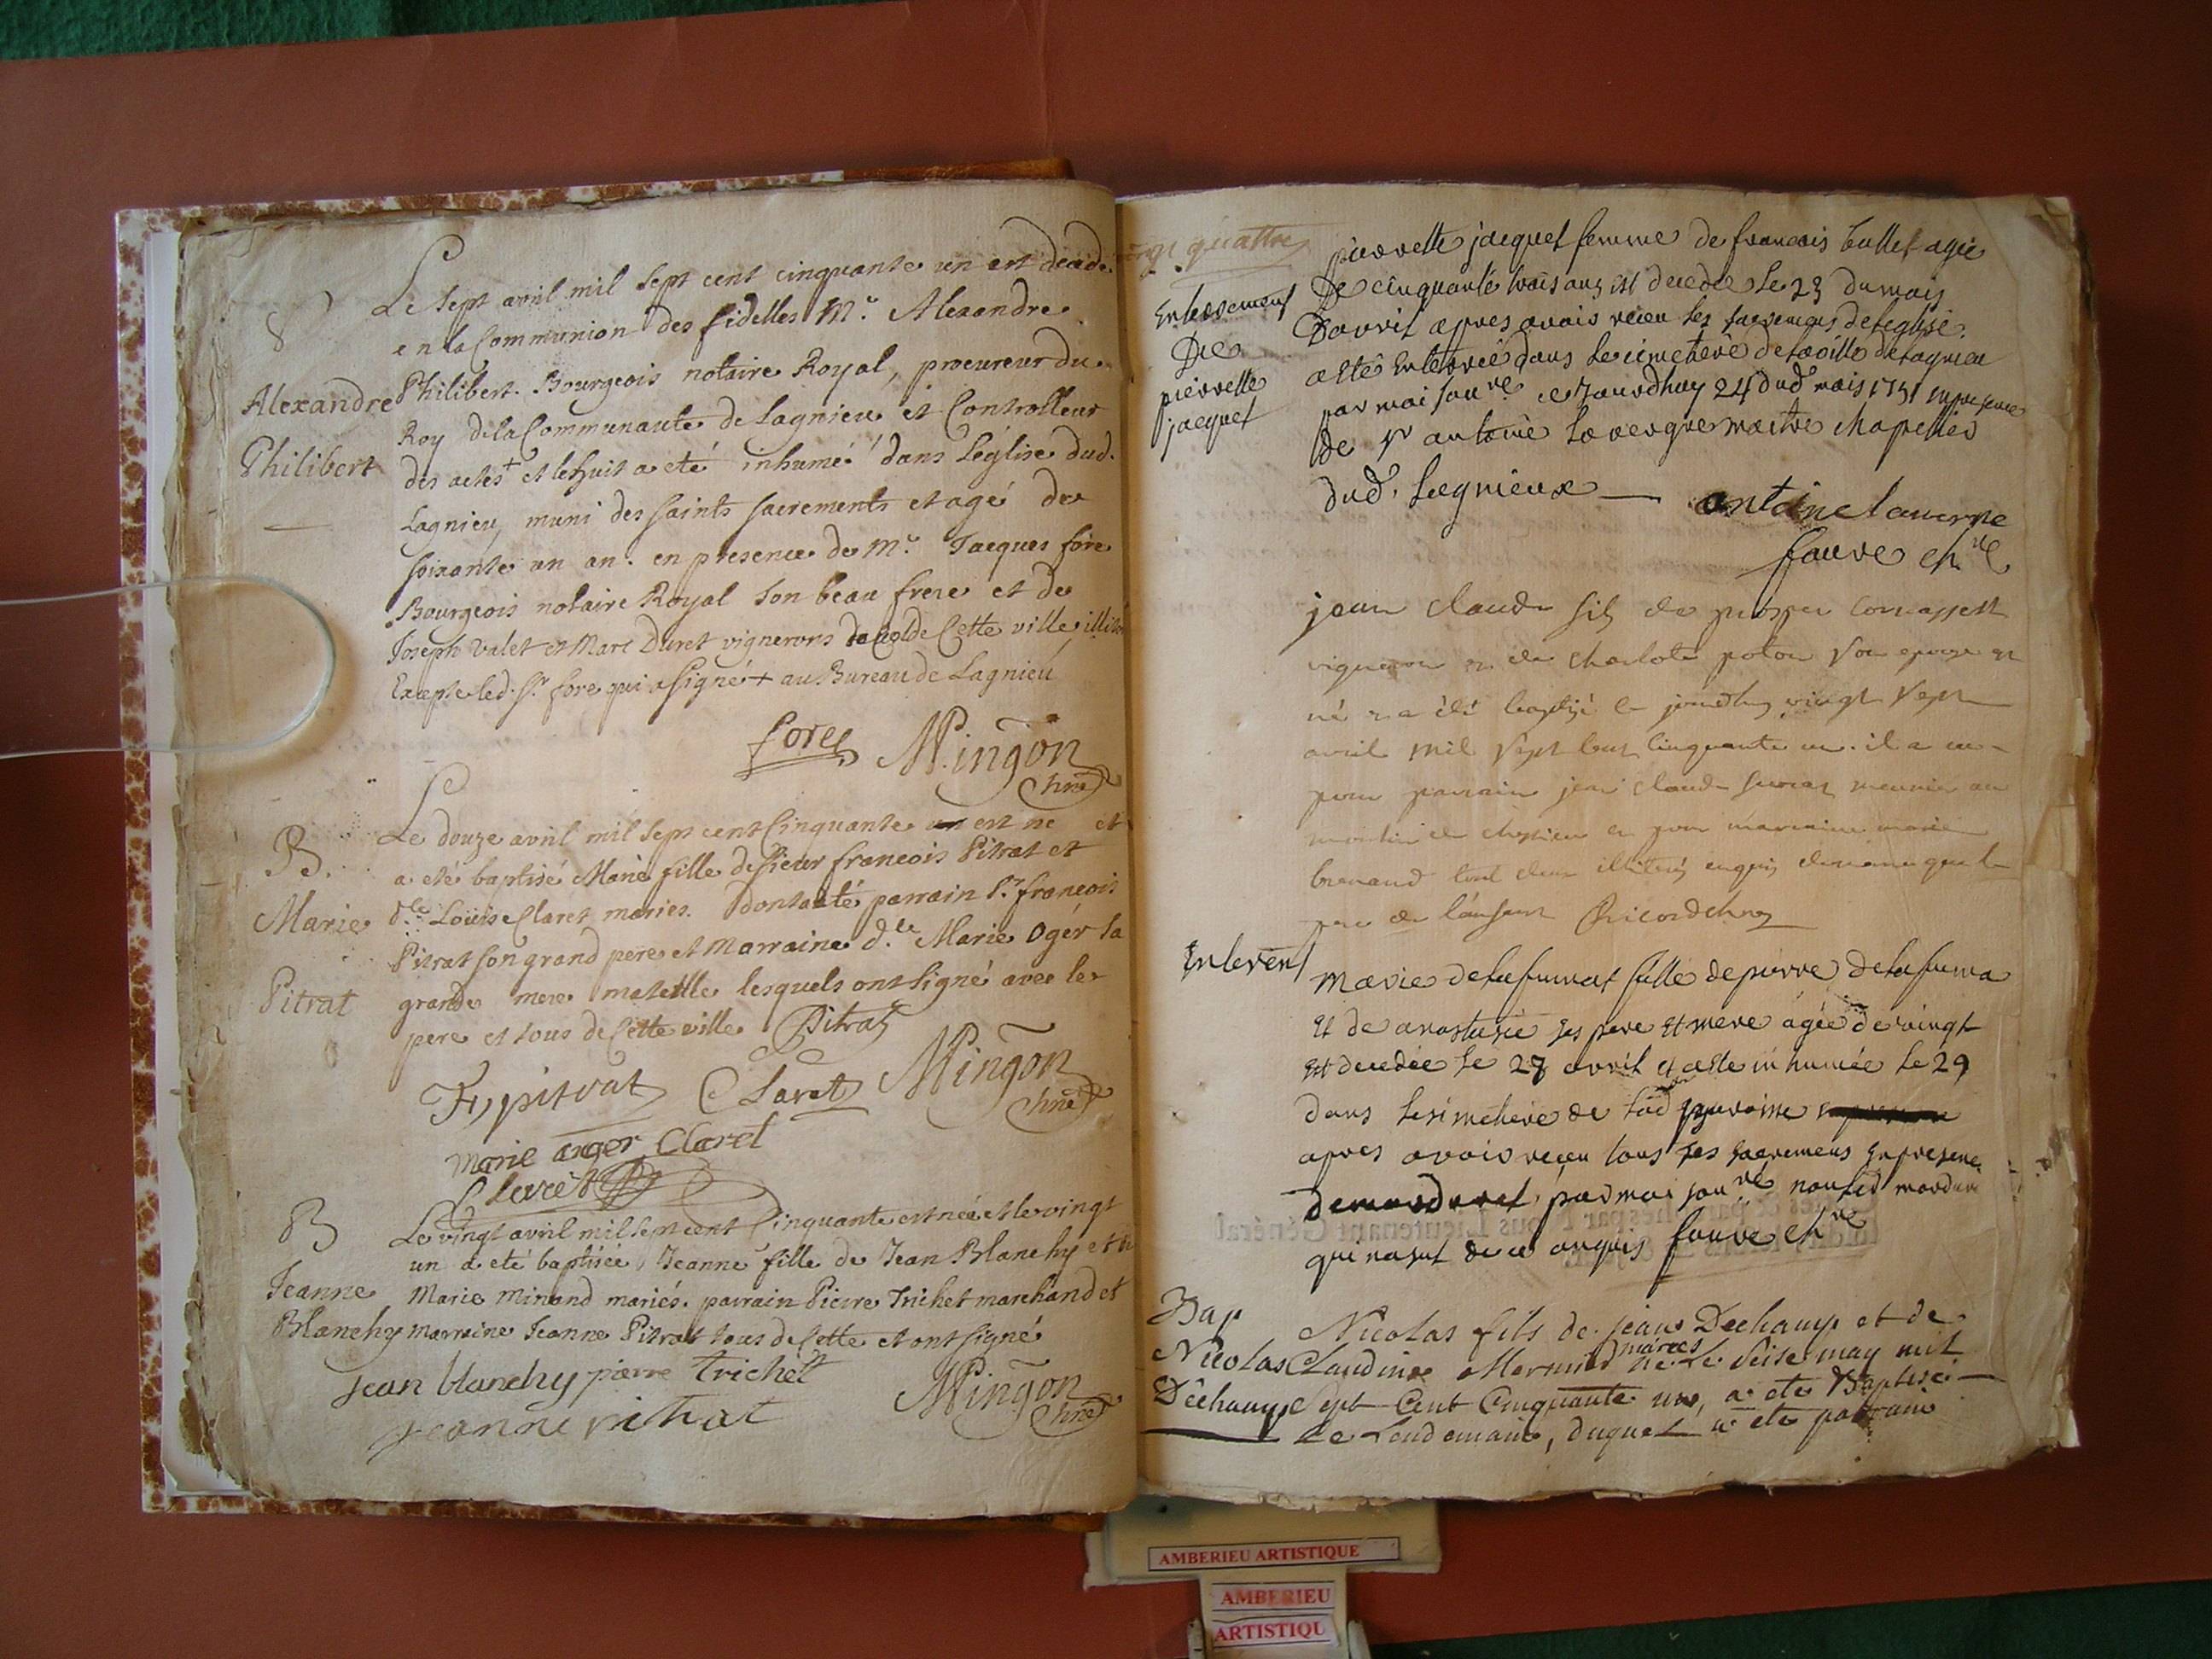 8
Alexandre
Philibert
Le sept avril mil sept cent cinquante un est décédé
en la Communion des fidelles Mr. Alexandre
Philibert. Bourgeois notaire Royal, procureur du
Roy de la Communauté de Lagnieu et Controlleur
des actes + et le huit a eté inhumé dans L'église dud.
Lagnieu, muni des saints sacrements et agé de
soixante un an. en presence de Mr. Jacques fore
Bourgeois notaire Royal son beau frere et de
Joseph Valet et Marc Duret vignerons de Cette ville
Excepte led. Sr. fore qui a signé + au Bureau de Lagnieu
fore Mingon
B.
Marie
Pitrat
Le douze avril mil sept cent Cinquante un est ne et
a eté baptisé Marie fille de sieur francois Pitrat et
dlle Louise Claret mariés. dont a été parrain Sr. francois
Pitrat son grand pere et Marraine d.le Marie Ogér sa
grande mere lesquels ont signé avec le
pere et tous de Cette ville Pitrat
pitrat Claret Mingon
marie auger Claret
Claret
B
Jeanne
Blanchy
Le vingt avril mil sept cent Cinquante est née et le vingt
un a eté baptisée Jeanne fille de Jean Blanchy et
Marie Minand mariés. parrain Pierre Trichet marchand et
marraine Jeanne Pitrat tous de Cette et ont signé
jean blanchy pierre trichet
Mingon
jeanne pitrat
vingt quattre
Enterrement
De
pierrette
jacquet
pierrette jacquet femme de francois bullet agée
De cinquante trois ans est decedée le 23 du mois
D'avril apres avoir receu les sacremens de leglise.
a esté enterrée dans le cimetiere de la ville de lagnieu
par moi sou.ne ce jourdhuy 24 dud mois 1751 en presence
de Sr antoine lavergne maitre chapellier
dud. Lagnieux — antoine lavergne
fauve ch.ne
jean claude fils de prosper
vigneron et de charlote poton son epouse est
né et a été baptisé le jourdhuy vingt sept
avril mil sept cent cinquante un. il a eu
pour parrain jean claude meunier au
moulin de et pour marraine marie
tout deux illiterés enquis de meme que le
pere de l'enfant Ricord chne
Enterem
marie delafumat fille de pierre delafuma
et de anastasie ses pere et mere agée de vingt
est decedée le 28 avril et a esté inhumée le 29
dans le simetiere de lad paroisse
apres avoir receu tous ses sacremens en presence
de par moi sou.ne
qui na sut de ce enquis fauve ch.ne
Bap
Nicolas
Dechamp
Nicolas fils de jean Dechamp et de
Claudine Mermier mariés né le seise may mil
Sept Cent Cinquante un, a ete Baptisé
Le Lendemain, duquel a ete parrain
AMBERIEU ARTISTIQUE
AMBERIEU
ARTISTIQU